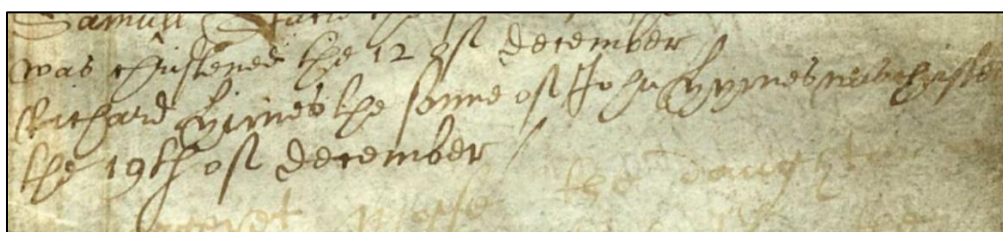 Samuell
was Christened the 12 of december
Richard Hymes the sonne of John Hymes was Christe
the 19th of december
the daughter